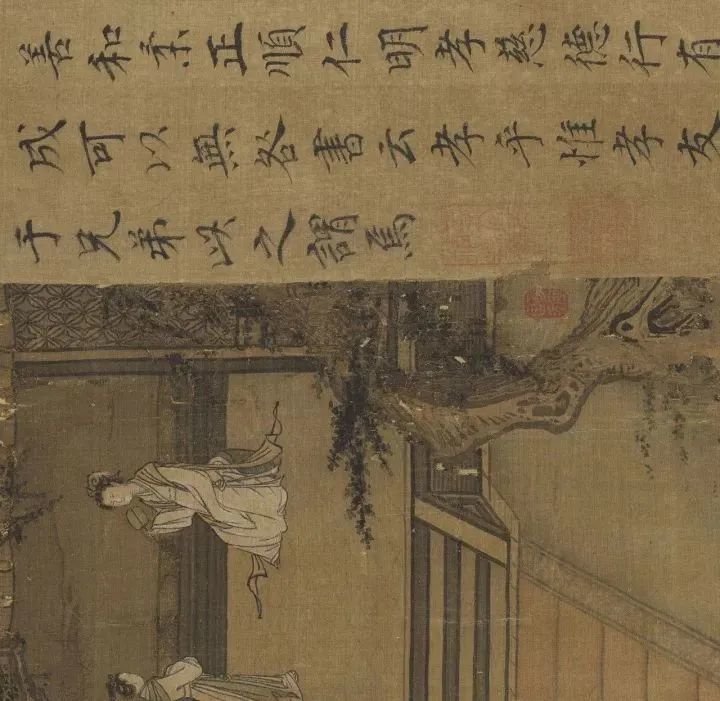 善和柔正順仁明孝慈德行有
成可以無咎書云孝乎惟孝友
于兄弟以之謂焉